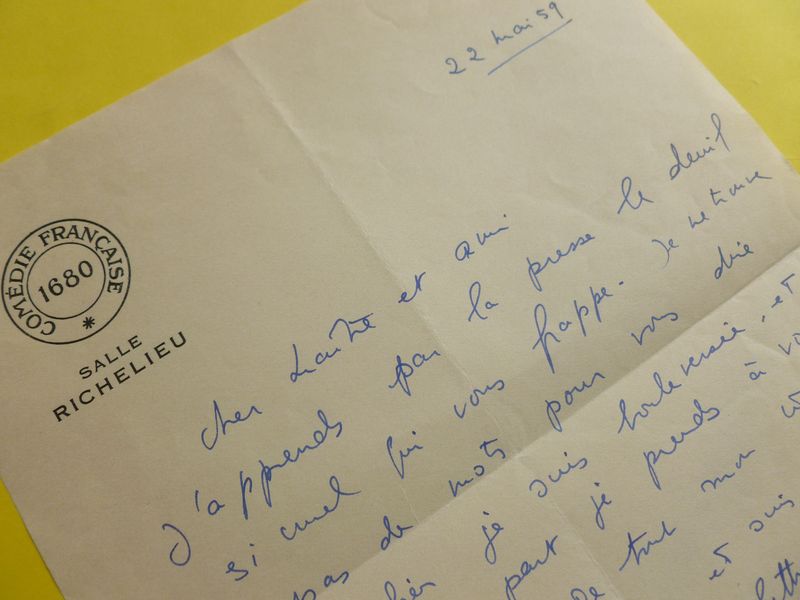 22 mai 59
COMÉDIE FRANÇAISE
1680
*
SALLE
RICHELIEU
Cher Maître et ami
J'apprends par la presse le deuil
si cruel qui vous frappe. Je ne trouve
pas de mots pour vous dire
je suis bouleversée, et
part je prends à
de tout mon
et suis